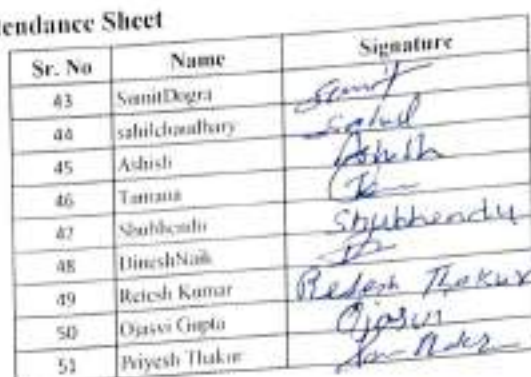 endance Sheet
Sr. No Name Signature
43 SumitDogra Sumit
44 sahilchaudhary Sahil
45 Ashish Ashish
46 Tamana
47 Shubhendu Shubhendu
48 DineshNaik
49 Retesh Kumar Thakur
50 Ojasvi Gupta Ojasvi
51 Priyesh Thakur